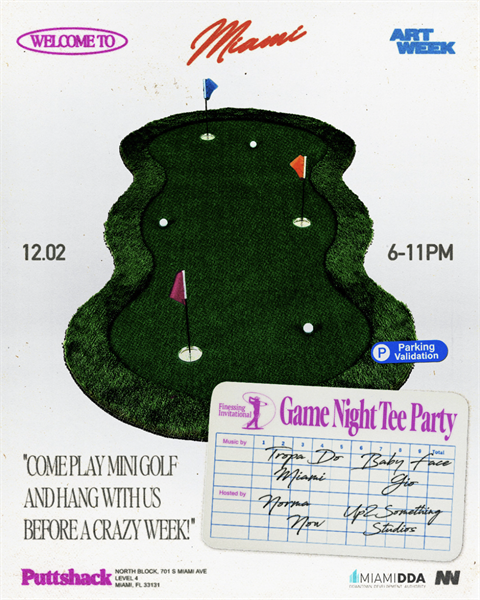 WELCOME TO
Miami
ART
WEEK
12.02
6-11PM
P
Parking
Validation
Finessing
Invitational
Game Night Tee Party
Music by
1 2 3 4 5 6 7 8 9 Total
Tropa Do
Miami
Baby Face
Gio
Hosted by
Norma
Now
Up2Something
Studios
"COME PLAY MINI GOLF
AND HANG WITH US
BEFORE A CRAZY WEEK!"
Puttshack
NORTH BLOCK, 701 S MIAMI AVE
LEVEL 4
MIAMI, FL 33131
MIAMI DDA
DOWNTOWN DEVELOPMENT AUTHORITY